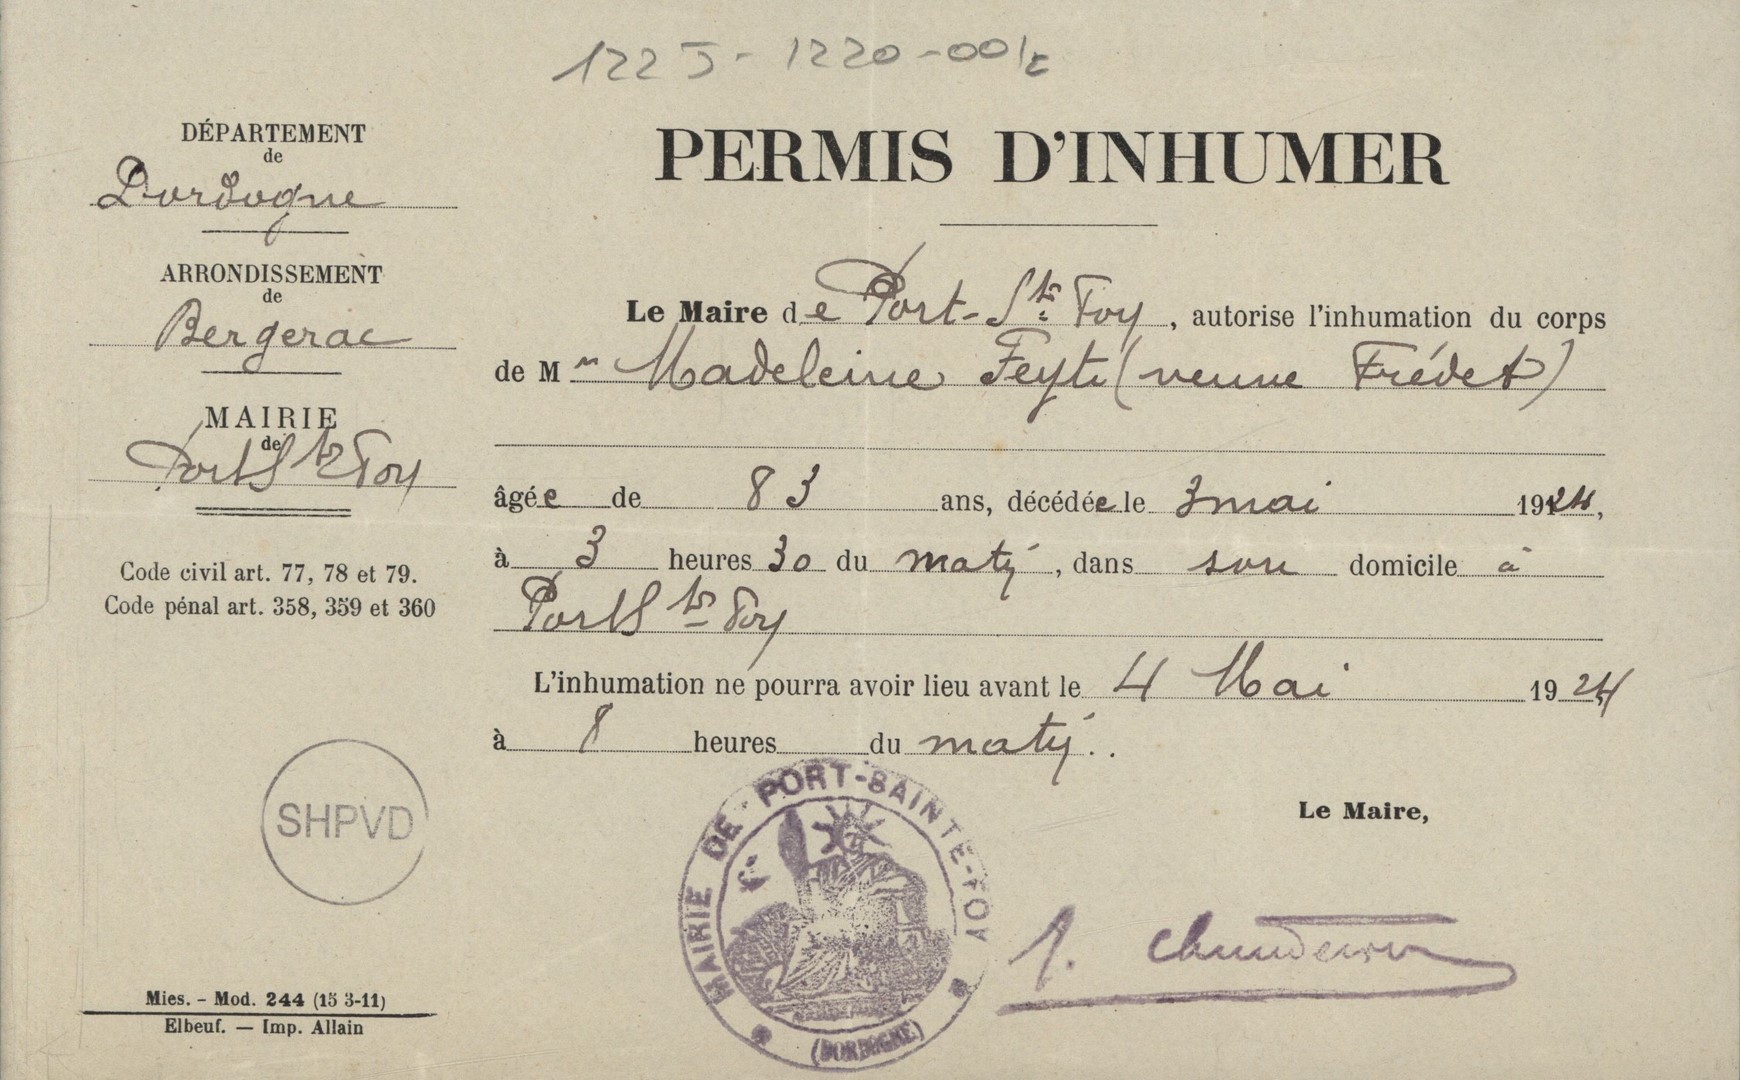 122 J - 1220-001c
DÉPARTEMENT
de
Dordogne
ARRONDISSEMENT
de
Bergerac
MAIRIE
de
Port Ste Foy
Code civil art. 77, 78 et 79.
Code pénal art. 358, 359 et 360
SHPVD
Mies. - Mod. 244 (15 3-11)
Elbeuf. — Imp. Allain
PERMIS D'INHUMER
Le Maire de Port-Ste Foy, autorise l'inhumation du corps
de M Madeleine Feyte (veuve Frédet)
âgée de 83 ans, décédée le 3 mai 1924,
à 3 heures 30 du matin, dans son domicile à
Port Ste Foy
L'inhumation ne pourra avoir lieu avant le 4 Mai 1924,
à 8 heures du matin.
Le Maire,
MAIRIE DE PORT-SAINTE-FOY
(DORDOGNE)